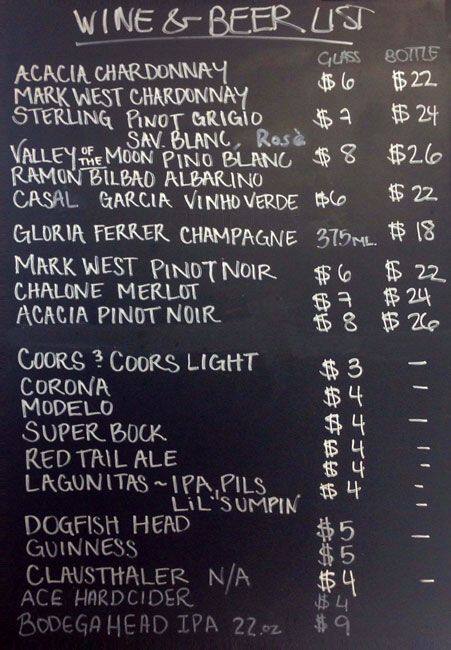 WINE & BEER LIST
GLASS BOTTLE
ACACIA CHARDONNAY $6 $22
MARK WEST CHARDONNAY
STERLING PINOT GRIGIO $7 $24
SAV. BLANC, Rosè
VALLEY OF THE MOON PINO BLANC $8 $26
RAMON BILBAO ALBARINO
CASAL GARCIA VINHO VERDE $6 $22
GLORIA FERRER CHAMPAGNE 375ML. $18
MARK WEST PINOT NOIR $6 $22
CHALONE MERLOT $7 $24
ACACIA PINOT NOIR $8 $26
COORS & COORS LIGHT $3 –
CORONA $4 –
MODELO $4 –
SUPER BOCK $4 –
RED TAIL ALE $4 –
LAGUNITAS ~ IPA, PILS $4 –
LiL' SUMPIN –
DOGFISH HEAD $5 –
GUINNESS $5
CLAUSTHALER N/A $4 –
ACE HARD CIDER $4
BODEGA HEAD IPA 22.oz $9